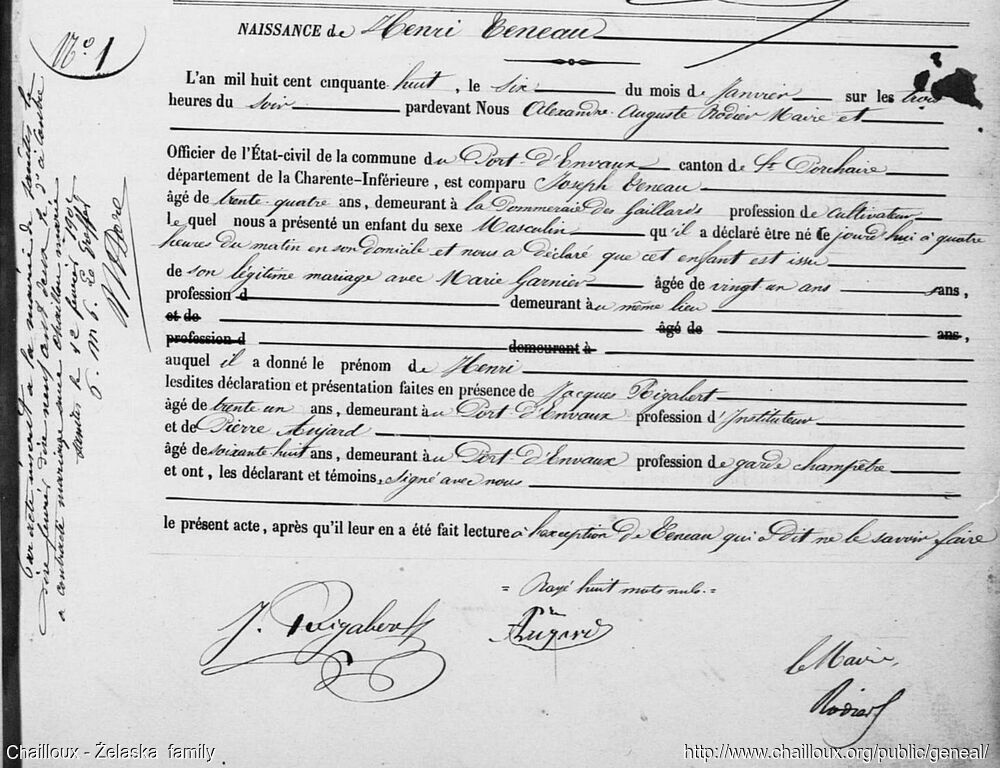 N° 1
NAISSANCE de Henri Teneau
L'an mil huit cent cinquante huit, le six du mois de Janvier sur les trois
heures du soir pardevant Nous Alexandre Auguste Rodier Maire et
Officier de l'État-civil de la commune du Port-d'Envaux canton de St Porchaire
département de la Charente-Inférieure, est comparu Joseph Teneau
âgé de trente-quatre ans, demeurant à la Pommeraie des Gaillards profession de cultivateur
le quel nous a présenté un enfant du sexe Masculin qu'il a déclaré être né ce jourd'hui à quatre
heures du matin en son domicile et nous a déclaré que cet enfant est issu
de son légitime mariage avec Marie Garnier âgée de vingt un ans ans,
profession d demeurant au même lieu
et de âgé de ans,
profession d demeurant à
auquel il a donné le prénom de Henri
lesdites déclaration et présentation faites en présence de Jacques Rigabert
âgé de trente un ans, demeurant au Port d'Envaux profession d'Instituteur
et de Pierre Aujard
âgé de soixante huit ans, demeurant au Port d'Envaux profession de garde champêtre
et ont, les déclarant et témoins, signé avec nous
le présent acte, après qu'il leur en a été fait lecture à l'exception de Teneau qui a dit ne le savoir faire
= Rayé huit mots nuls. =
J. Rigabert
le Maire,
Rodier
Par acte inscrit à la mairie de la
dix février dix neuf cent
a contracté mariage avec mairie
le 12 février 190
Le Greffier
Chailloux - Żelaska family
http://www.chailloux.org/public/geneal/